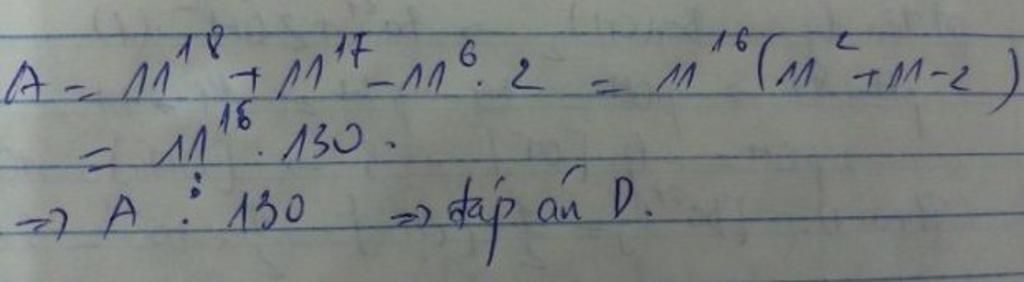 A = 11^18 + 11^17 - 11^6 . 2 = 11^16 (11^2 + 11 - 2)
= 11^16 . 130 .
=> A ⋮ 130 => đáp án D.